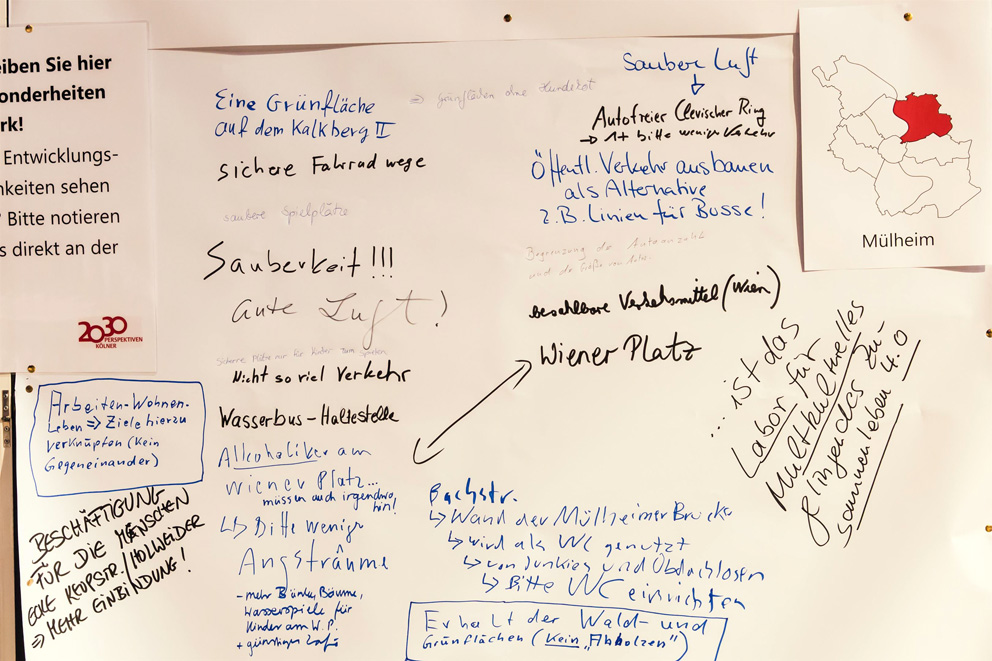 eiben Sie hier
onderheiten
rk!
Entwicklungs-
nkeiten sehen
? Bitte notieren
s direkt an der
2030
PERSPEKTIVEN
KÖLNER
Eine Grünfläche
auf dem Kalkberg II
⇒ Grünflächen ohne Hundekot
sichere Fahrradwege
saubere Spielplätze
Sauberkeit!!!
Gute Luft!
Nicht so viel Verkehr
Wasserbus-Haltestelle
Alkoholiker am
Wiener Platz...
müssen auch irgendwo
hin!
↳ Bitte weniger
Angsträume
- mehr Bänke, Bäume,
Wasserspiele für
Kinder am W.P.!
+ günstiges
Arbeiten-Wohnen-
Leben ⇒ Ziele hierzu
verknüpfen (kein
Gegeneinander)
BESCHÄFTIGUNG
FÜR DIE MENSCHEN
ECKE KEUPSTR./HOLWEIDER
⇒ MEHR EINBINDUNG!
Saubere Luft
↓
Autofreier Clevischer Ring
→ 1+ bitte weniger Verkehr
Öffentl. Verkehr ausbauen
als Alternative
z.B. Linien für Busse!
Begrenzung der Autoanzahl
und der Größe von Autos
bezahlbare Verkehrsmittel (Wien)
Wiener Platz
Bachstr.
↳ Wand der Müllheimer Brücke
↳ wird als WC genutzt
↳ von Junkies und Obdachlosen
↳ Bitte WC einrichten
Erhalt der Wald- und
Grünflächen (Kein „Abholzen")
Mülheim
...ist das
Labor für
Multikulturelles
klingendes Zu-
sammenleben 4.0